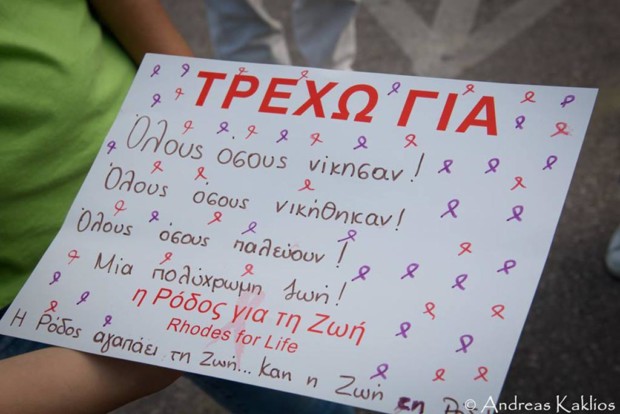 ΤΡΕΧΩ ΓΙΑ
Όλους όσους νίκησαν!
Όλους όσους νικήθηκαν!
Όλους όσους παλεύουν!
Μία πολύχρωμη ζωή!
η Ρόδος για τη Ζωή
Rhodes for Life
Η Ρόδος αγαπάει τη Ζωή... Και η Ζωή τη
© Andreas Kaklios